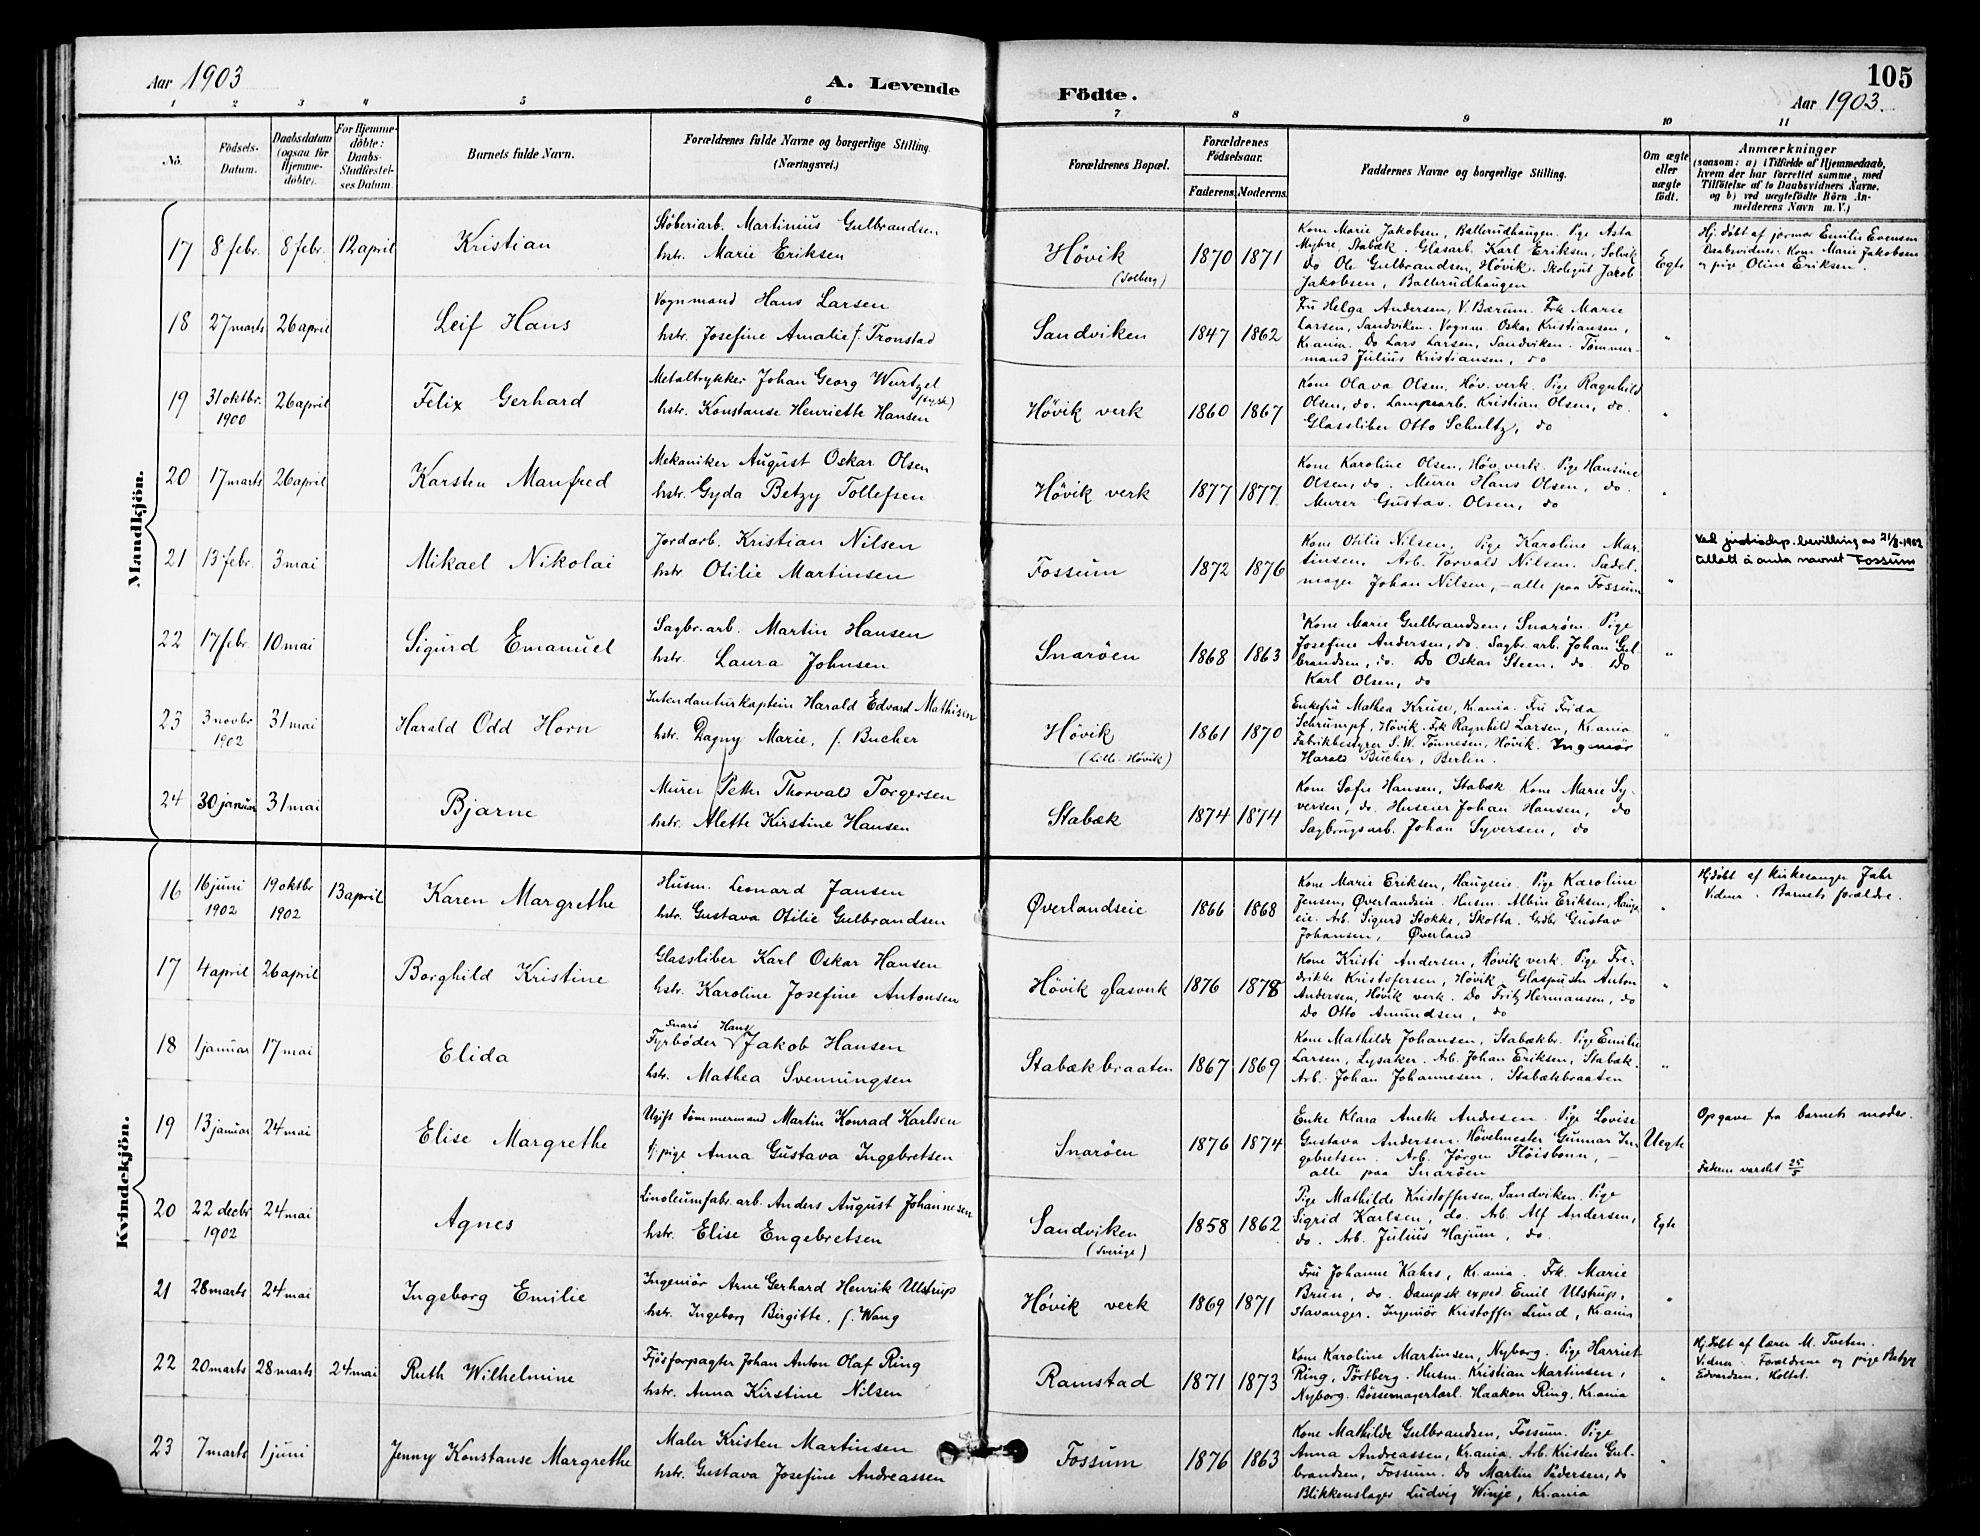 Aar 1903
A. Levende
Födte.
105
Aar 1903.
1 2 3 4 5 6 7 8 9 10 11
No.
Födsels-
Datum.
Daabsdatum
(ogsaa for
Hjemme-
döbte).
For Hjemme-
döbte:
Daabs-
Stadfæstel-
ses Datum.
Barnets fulde Navn.
Forældrenes fulde Navne og borgerlige Stilling.
(Næringsvei.)
Forældrenes Bopæl.
Forældrenes
Födselsaar.
Faderens.
Moderens.
Faddernes Navne og borgerlige Stilling.
Om ægte
eller
uægte
födt.
Anmærkninger
(saasom: a) i Tilfælde af Hjemmedaab,
hvem der har forrettet samme, med
Tilföielse af to Daabsvidners Navne,
og b) ved uægtefödte Börn An-
melderens Navn m. V.)
Mandkjön.
17
8 febr.
8 febr.
12 april
Kristian
Støberiarb. Martinius Gulbrandsen
hstr. Marie Eriksen
Høvik
(Solberg)
1870
1871
Kone Marie Jakobsen, Ballerudhaugen. Pige Asta
Myhre, Stabæk. Glasarb. Karl Eriksen, Solvik
Do Ole Gulbrandsen, Høvik. Skolegut Jacob
Jakobsen, Ballerudhaugen
Egte
Hj. døbt af jormor Emilie Evensen
Daabsvidner: Kone Marie Jakobsen
og pige Oline Eriksen.
18
27 marts
26 april
Leif Hans
Vognmand Hans Larsen
hstr. Josefine Amalie f. Tronstad
Sandviken
1847
1862
Fru Helga Andersen, V. Bærum. Frk Marie
Larsen, Sandviken. Vognm. Oskar Kristiansen,
Kr.ania. Do Lars Larsen, Sandviken. Tømmer-
mand Julius Kristiansen, do
"
19
31 oktbr.
1900
26 april
Felix Gerhard
Metaltrykker Johan Georg Wurtzel
(tysk)
hstr. Konstanse Henriette Hansen
Høvik verk
1860
1867
Kone Olava Olsen, Høv. verk. Pige Ragnhild
Olsen, do. Lampearb. Kristian Olsen, do.
Glassliber Otto Schultz, do
"
20
17 marts
26 april
Karsten Manfred
Mekaniker August Oskar Olsen
hstr. Gyda Betzy Tollefsen
Høvik verk
1877
1877
Kone Karoline Olsen, Høv. verk. Pige Hansine
Olsen, do. Murer Hans Olsen, do.
Murer Gustav Olsen, do
"
21
13 febr.
3 mai
Mikael Nikolai
Jordarb. Kristian Nilsen
hstr Otilie Martinsen
Fossum
1872
1876
Kone Otilie Nilsen. Pige Karoline Mar-
tinsen. Arb. Torvald Nilsen. Sadel-
mager Johan Nilsen, - alle paa Fossum
"
Ved justisdep. bevilling av
tillatt å anta navnet Fossum
22
17 febr.
10 mai
Sigurd Emanuel
Sagbr. arb. Martin Hansen
hstr. Laura Johnsen
Snarøen
1868
1863
Kone Marie Gulbrandsen, Snarøen. Pige
Josefine Andersen, do. Sagbr. arb. Johan Gul-
brandsen, do. Do Oskar Steen, do Do
Karl Olsen, do
"
23
3 novbr
1902
31 mai
Harald Odd Horn
Intendanturkaptein Harald Edvard Mathisen
hstr. Dagny Marie, f. Bucher
Høvik
(Lille-Høvik)
1861
1870
Enkefru Mathea Kruse, Kr.ania. Fru Frida
Schrumpf, Høvik. Frk Ragnhild Larsen, Kr.ania
Fabrikbestyrer S. W. Tønnesen, Høvik. Ingeniør
Harald Bucher, Berlin.
"
24
30 januar
31 mai
Bjarne
Murer Petter Thorvald Torgersen
hstr. Alette Kirstine Hansen
Stabæk
1874
1874
Kone Sofie Hansen, Stabæk. Kone Marie Sy-
versen, do. Huseier Johan Hansen, do
Sagbrugsarb. Johan Syversen, do
Kvindekjön.
16
16 juni
1902
19 oktbr
1902
13 april
Karen Margrethe
Husm. Leonard Jansen
hstr. Gustava Otilie Gulbrandsen
Øverlandseie
1866
1868
Kone Marie Eriksen, Haugseie. Pige Karoline
Jensen, Øverlandseie. Husm. Albin Eriksen, Haugs
eie. Arb. Sigurd Stokke, Skotta. Grdbr Gustav
Johansen, Øverland
"
Hjdøbt af kirkesanger Jahr
Vidner: Barnets forældre.
17
4 april
26 april
Borghild Kristine
Glassliber Karl Oskar Hansen
hstr. Karoline Josefine Antonsen
Høvik glasverk
1876
1878
Kone Kristi Andersen, Høvik verk. Pige Fre-
drikke Kristofersen, Høvik. Glaspuster Anton
Andersen, Høvik verk. Do Fritz Hermansen, do
Do Otto Amundsen, do
"
18
1 januar
17 mai
Elida
Snarø Hans
Fyrbøder Jakob Hansen
hstr. Mathea Svenningsen
Stabækbraaten
1867
1869
Kone Mathilde Johansen, Stabækbr. Pige Emilie
Larsen, Lysaker. Arb. Johan Eriksen, Stabæk.
Arb. Johan Johannesen. Stabækbraaten
"
19
13 januar
24 mai
Elise Margrethe
Ugift tømmermand Martin Konrad Karlsen
pige Anna Gustava Ingebretsen
Snarøen
1876
1874
Enke Klara Anette Andresen. Pige Lovise
Gustava Andersen. Høvelmester Gunnar In-
gebretsen. Arb. Jørgen Fløisbonn, -
alle paa Snarøen
Uegte
Opgave fra barnets moder.
Faderen varslet 25/5
20
22 decbr
1902
24 mai
Agnes
Linoleumfabr. arb. Anders August Johannesen
hstr. Elise Engebretsen
Sandviken
(Sverige)
1858
1862
Pige Mathilde Kristoffersen, Sandviken. Pige
Sigrid Karlsen, do. Arb. Alf Andersen,
do. Arb. Julius Hajum, do.
Egte
21
28 marts
24 mai
Ingeborg Emilie
Ingeniør Arne Gerhard Henrik Ulstrup
hstr. Ingeborg Birgitte, f. Wang
Høvik verk
1869
1871
Fru Johanne Kahrs, Kr.ania. Frk. Marie
Brun, do. Dampsk. exped. Emil Ulstrup,
Stavanger. Ingeniør Kristoffer Lund, Kr.ania
"
22
20 marts
28 marts
24 mai
Ruth Wilhelmine
Fjøsforpagter Johan Anton Olaf Ring
hstr. Anna Kirstine Nilsen
Ramstad
1871
1873
Kone Karoline Martinsen, Nyborg. Pige Harriet
Ring, Tørtberg. Husm. Kristian Martinsen,
Nyborg. Bøssemagerlærl. Haakon Ring, Kr.ania
"
Hjdøbt af lærer M. Tveten.
Vidner: Forældrene og pige Betzy
Edvardsen, Holtet.
23
7 marts
1 juni
Jenny Konstanse Margrethe
Maler Kristen Martinsen
hstr. Gustava Josefine Andreassen
Fossum
1876
1863
Kone Mathilde Gulbrandsen, Fossum. Pige
Anna Andreassen, Kr.ania. Arb. Kristen Gul-
brandsen, Fossum. Do Martin Pedersen, do
Blikkenslager Ludvig Winje, Kr.ania
"